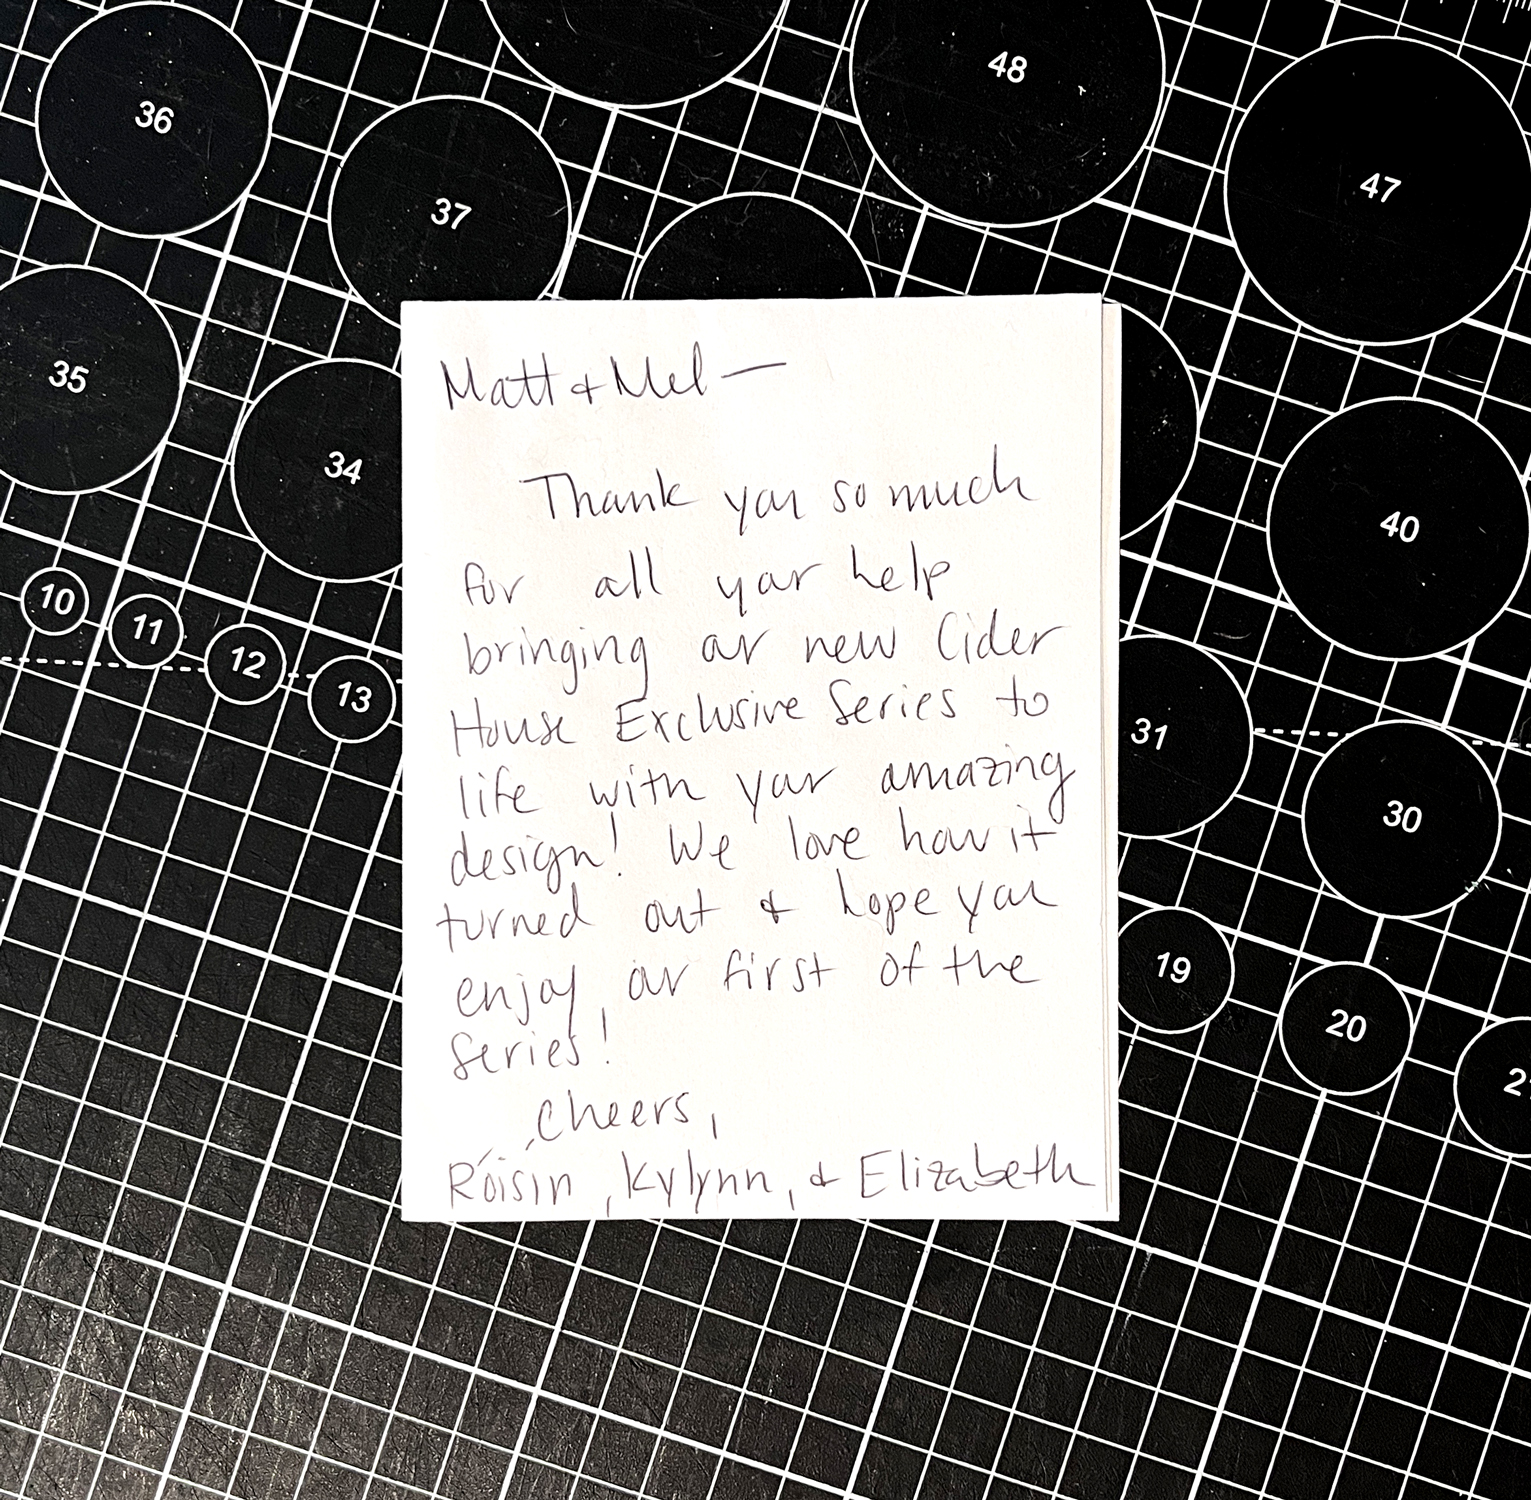 48
36
47
37
35
34
40
10
11
12
13
31
30
19
20
Matt & Mel —
Thank you so much
for all your help
bringing our new Cider
House Exclusive Series to
life with your amazing
design! We love how it
turned out & hope you
enjoy our first of the
Series!
Cheers,
Róisín, Kylynn, & Elizabeth